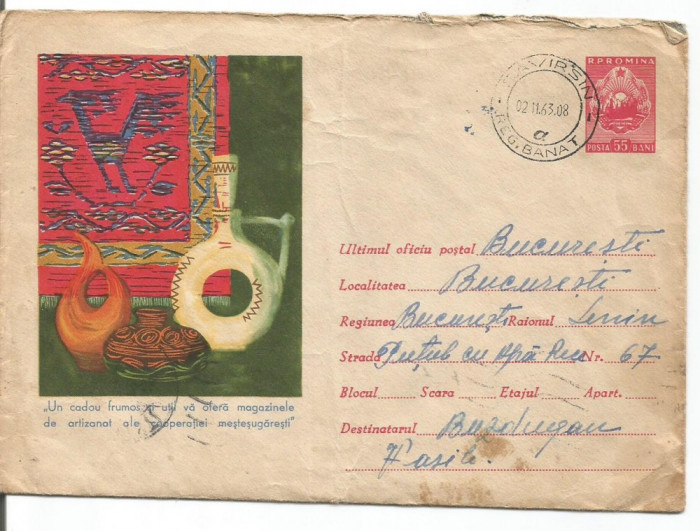 R.P.ROMINA
POSTA 55 BANI
SAVIRSIN
02.11.63.08
a
REG. BANAT
Ultimul oficiu poștal București
Localitatea București
Regiunea București Raionul Lenin
Strada Puțul cu Apă Rece Nr. 67
Blocul Scara Etajul Apart.
Destinatarul Buzdugan
Vasile.
„Un cadou frumos și util vă oferă magazinele
de artizanat ale cooperației meșteșugărești”